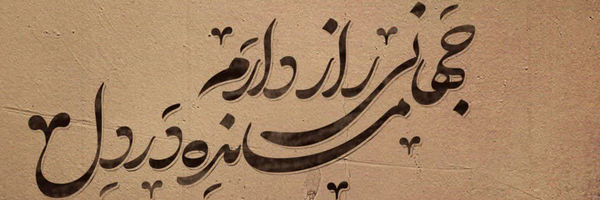 جهانی راز دارم
مانده در دل